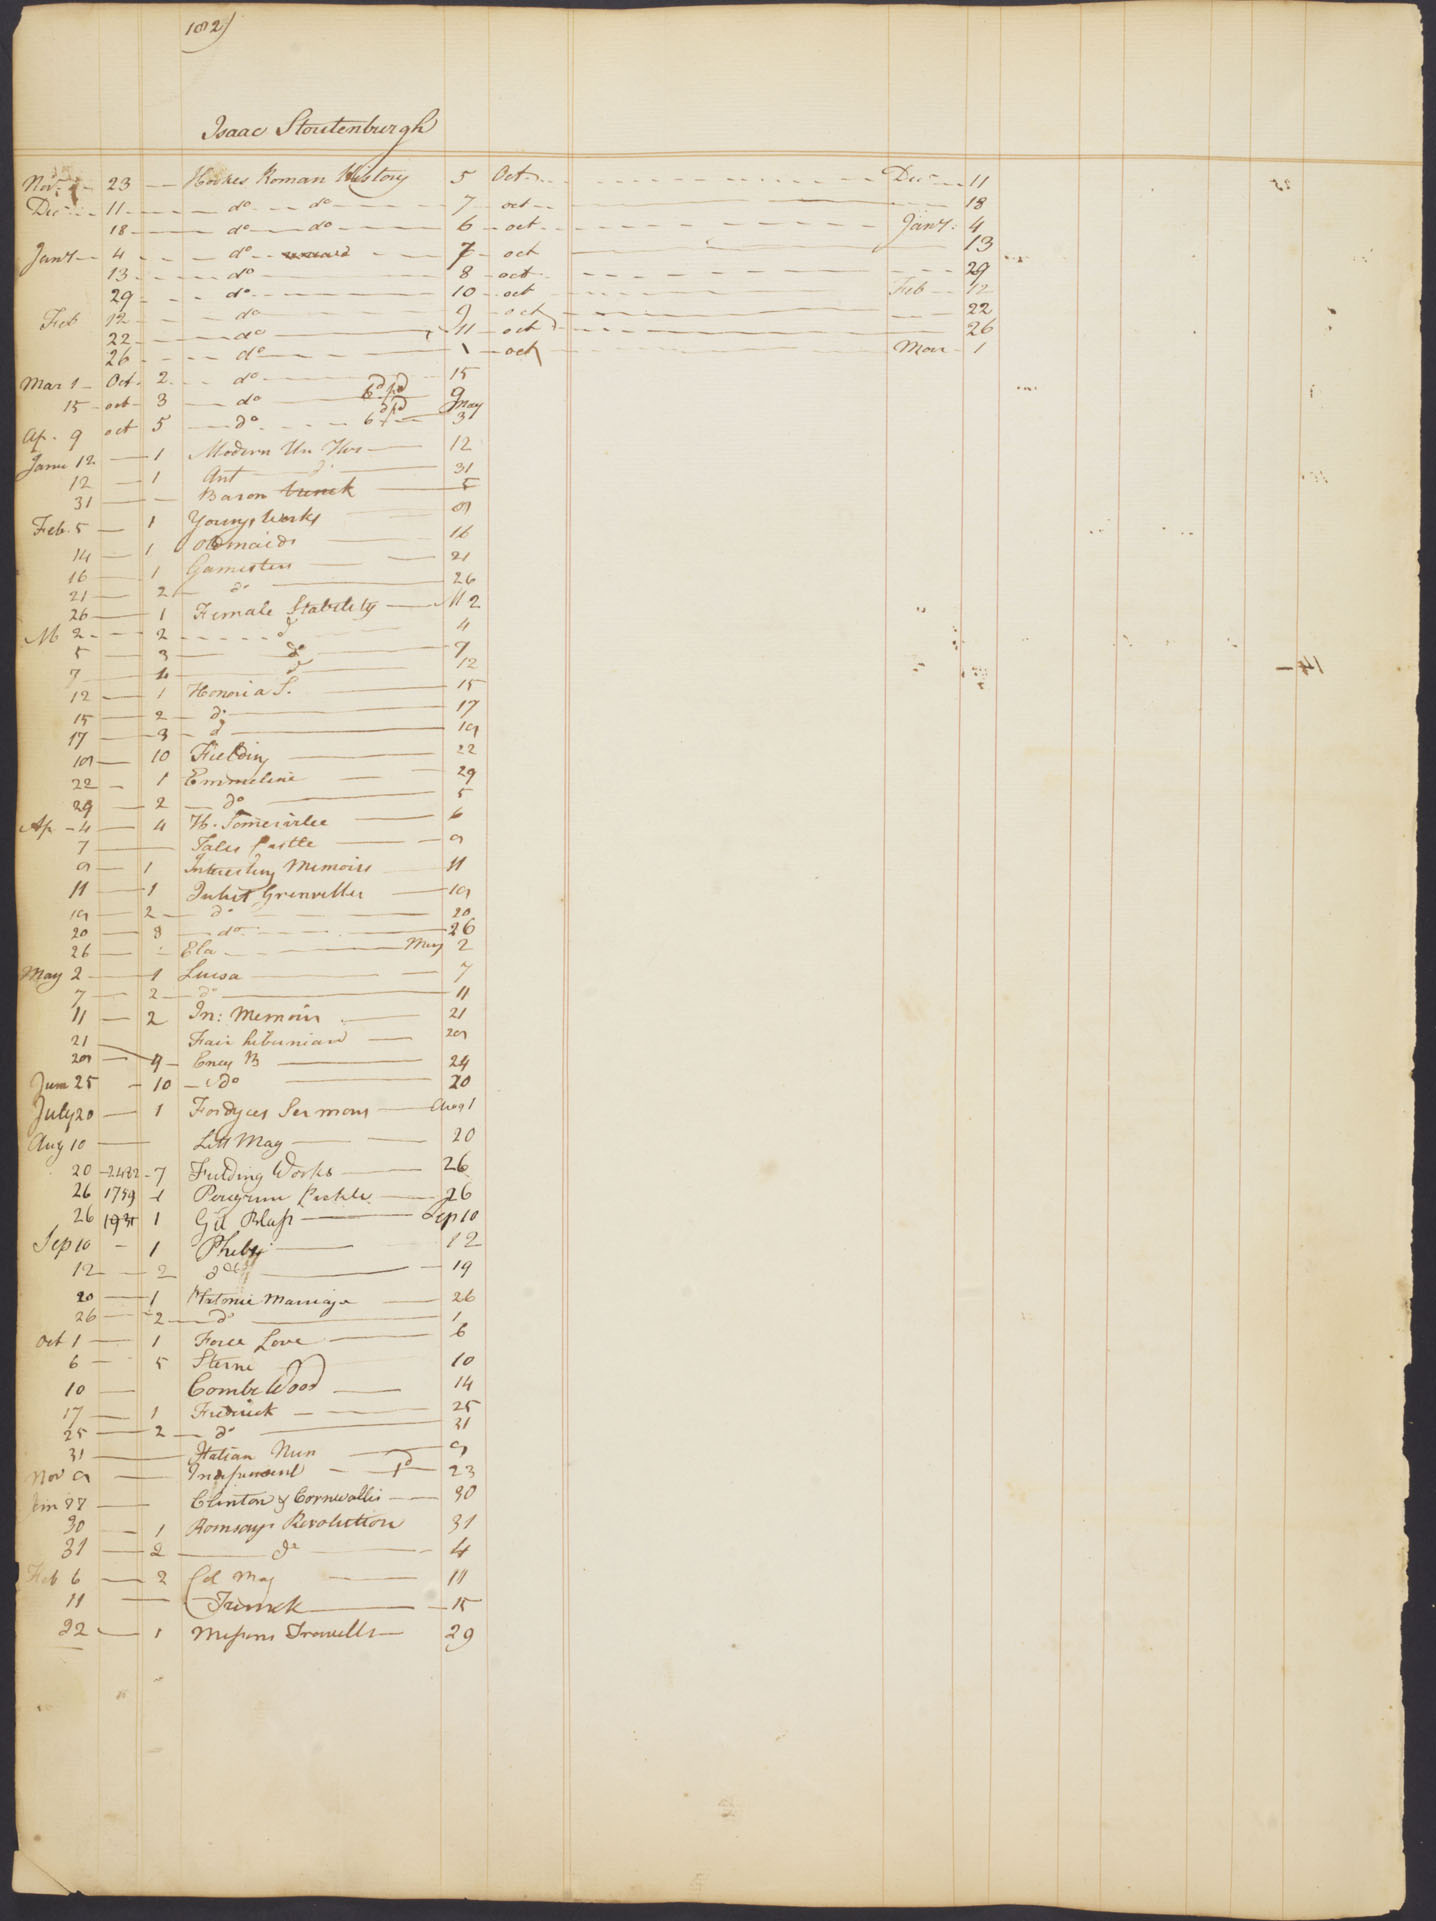 182)
Isaac Stoutenburgh
Novr 23 Hookes Roman History 5 Oct Decr 11
Decr 11 do do 7 oct 18
18 do do 6 oct Jany 4
Jany 4 do 7 oct 13
13 do 8 oct 29
29 do 10 oct Feb 12
Feb 12 do 9 oct 22
22 do 11 oct 26
26 do 1 oct Mar 1
Mar 1 Oct 2 do 15
15 oct 3 do 6d pd 9
Ap. 9 oct 5 do 6d pd May 3
Janu 12 1 Modern Un His 12
12 1 Ant d. 31
31 Baron trenck 5
Feb. 5 1 Youngs Works 9
14 1 Old maids 16
16 1 Gamesters 21
21 2 do 26
26 1 Female Stability M 2
M 2 2 d 4
5 3 do 7
7 4 d 12
12 1 Honoria S. 15
15 2 do 17
17 3 d 19
19 10 Fielding 22
22 1 Emmeline 29
29 2 do 5
Ap 4 4 H. Somerville 6
7 Tales Castle 9
9 1 Interesting Memoirs 11
11 1 Juliet Grenville 19
19 2 do 20
20 3 do 26
26 Ela May 2
May 2 1 Luisa 7
7 2 do 11
11 2 In: Memoirs 21
21 Fair hibernian 29
29 9 Ency B 24
June 25 10 do 20
July 20 1 Fordyces Sermons Aug 1
Aug 10 Litt Mag 20
20 2482 7 Fielding Works 26
26 1759 1 Peregrine Pickle 26
26 1 Gil Blass Sep 10
Sep 10 1 Pheby 12
12 2 do 19
20 1 Platonic Marriage 26
26 2 do 1
Oct 1 1 Force Love 6
6 5 Sterne 10
10 Combe Wood 14
17 1 Fredrick 25
25 2 do 31
31 Italian Nun 9
Nov 9 Independent 1d 23
Clinton & Cornwallis 30
30 1 Romsays Revolution 31
31 2 do 4
Feb 6 2 Col Mag 11
11 Trenck 15
22 1 Missons Travells 29